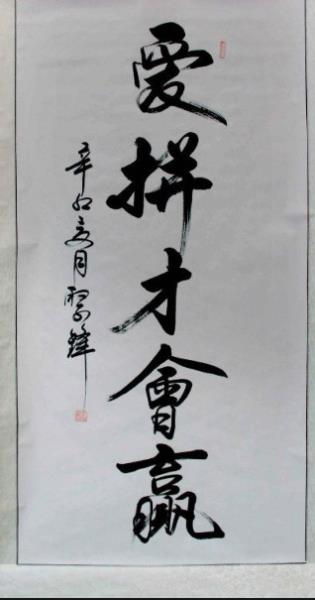 愛拼才會贏
辛卯夏月雲鋒